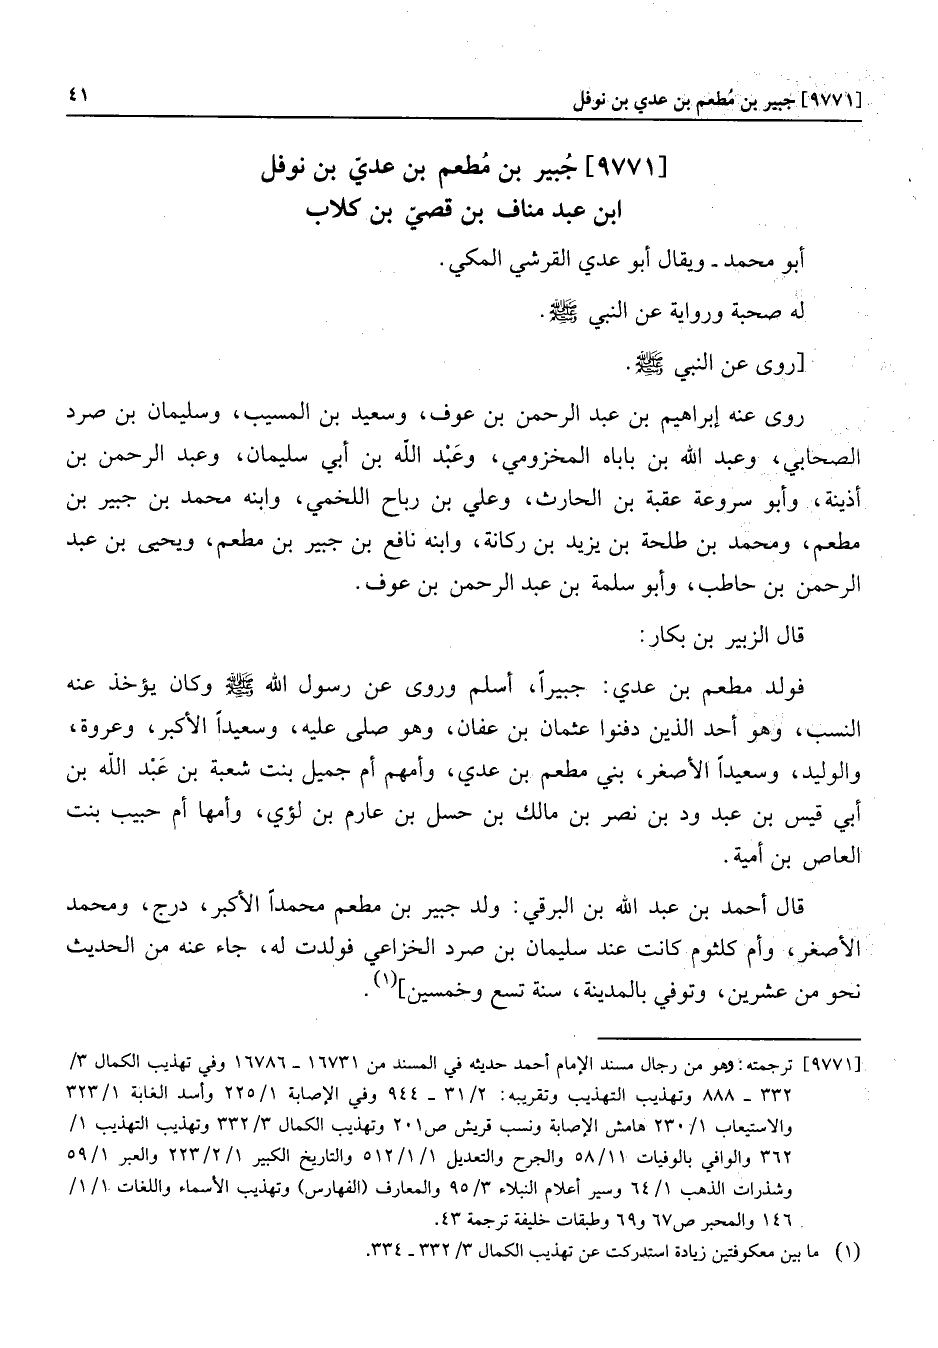 [٩٧٧١] جبير بن مُطعم بن عدي بن نوفل ٤١
[٩٧٧١] جُبير بن مُطعم بن عديّ بن نوفل
ابن عبد مناف بن قصيّ بن كلاب
أبو محمد ـ ويقال أبو عدي القرشي المكي.
له صحبة ورواية عن النبي ﷺ.
[روى عن النبي ﷺ.
روى عنه إبراهيم بن عبد الرحمن بن عوف، وسعيد بن المسيب، وسليمان بن صرد
الصحابي، وعبد الله بن باباه المخزومي، وعَبْد اللّه بن أبي سليمان، وعبد الرحمن بن
أذينة، وأبو سروعة عقبة بن الحارث، وعلي بن رباح اللخمي، وابنه محمد بن جبير بن
مطعم، ومحمد بن طلحة بن يزيد بن ركانة، وابنه نافع بن جبير بن مطعم، ويحيى بن عبد
الرحمن بن حاطب، وأبو سلمة بن عبد الرحمن بن عوف.
قال الزبير بن بكار:
فولد مطعم بن عدي: جبيراً، أسلم وروى عن رسول الله ﷺ وكان يؤخذ عنه
النسب، وهو أحد الذين دفنوا عثمان بن عفان، وهو صلى عليه، وسعيداً الأكبر، وعروة،
والوليد، وسعيداً الأصغر، بني مطعم بن عدي، وأمهم أم جميل بنت شعبة بن عَبْد اللّه بن
أبي قيس بن عبد ود بن نصر بن مالك بن حسل بن عارم بن لؤي، وأمها أم حبيب بنت
العاص بن أمية.
قال أحمد بن عبد الله بن البرقي: ولد جبير بن مطعم محمداً الأكبر، درج، ومحمد
الأصغر، وأم كلثوم كانت عند سليمان بن صرد الخزاعي فولدت له، جاء عنه من الحديث
نحو من عشرين، وتوفي بالمدينة، سنة تسع وخمسين](١).
[٩٧٧١] ترجمته: وهو من رجال مسند الإمام أحمد حديثه في المسند من ١٦٧٣١ ـ ١٦٧٨٦ وفي تهذيب الكمال ٣/
٣٣٢ ـ ٨٨٨ وتهذيب التهذيب وتقريبه: ٣١/٢ ـ ٩٤٤ وفي الإصابة ٢٢٥/١ وأسد الغابة ٣٢٣/١
والاستيعاب ٢٣٠/١ هامش الإصابة ونسب قريش ص٢٠١ وتهذيب الكمال ٣٣٢/٣ وتهذيب التهذيب ١/
٣٦٢ والوافي بالوفيات ٥٨/١١ والجرح والتعديل ٥١٢/١/١ والتاريخ الكبير ٢٢٣/٢/١ والعبر ٥٩/١
وشذرات الذهب ٦٤/١ وسير أعلام النبلاء ٩٥/٣ والمعارف (الفهارس) وتهذيب الأسماء واللغات ١/١/
١٤٦ والمحبر ص٦٧ و٦٩ وطبقات خليفة ترجمة ٤٣.
(١) ما بين معكوفتين زيادة استدركت عن تهذيب الكمال ٣/ ٣٣٢ ـ ٣٣٤.